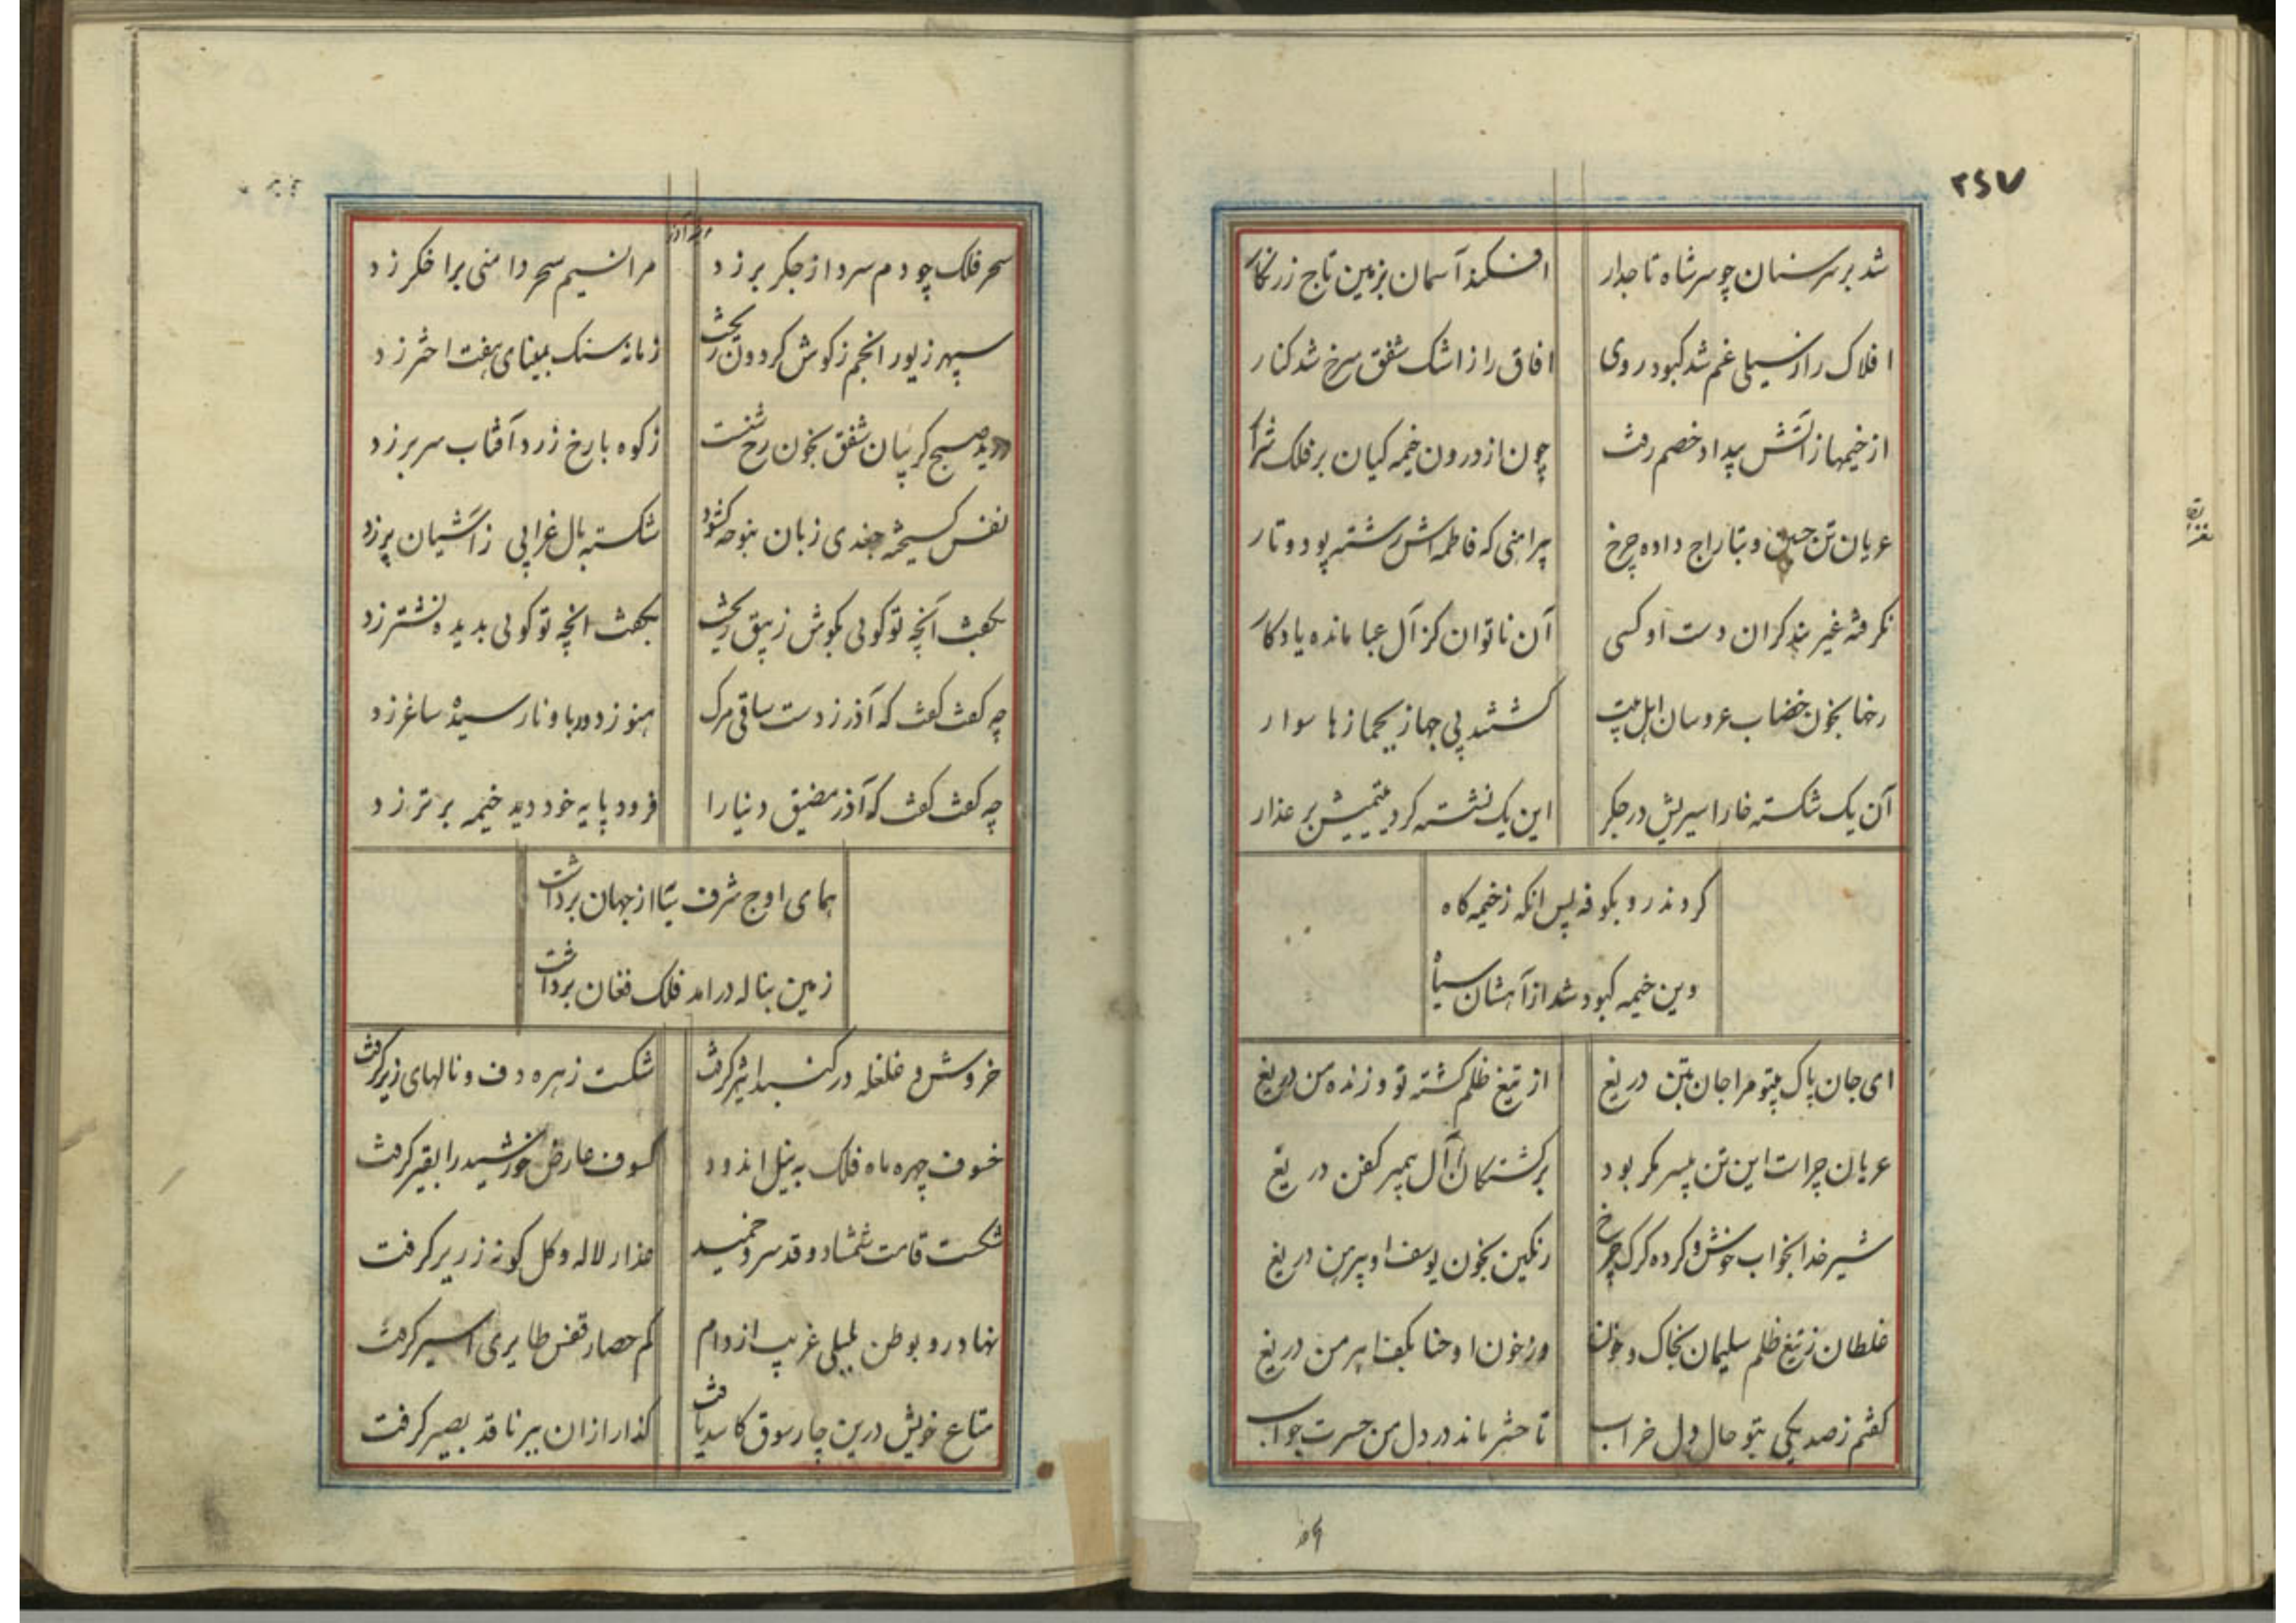 ۲۶۷
شد بر سر سنان چو سر شاه تاجدار افکند آسمان بزمین تاج زرنکار
افلاک را ز سیلی غم شد کبود روی افاق را ز اشک شفق سرخ شد کنار
از خیمها ز آتش بیداد خصم رفت چون از درون خیمه کیان بر فلک شرار
عریان تن حسین و بتاراج داده چرخ پیراهنی که فاطمه اش رشته پود و تار
نکرفته غیر بند کران دست او کسی آن ناتوان کز آل عبا مانده یادکار
رخها بخون خضاب عروسان اهل بیت کشتند بی جهاز بجمازها سوار
آن یک شکسته خار اسیریش در جکر این یک نشسته کرد یتیمیش بر عذار
کردند رو بکوفه پس انکه ز خیمه کاه
وین خیمه کبود شد از آهشان سیاه
ای جان پاک بیتو مرا جان بتن دریغ از تیغ ظلم کشته تو و زنده من دریغ
عریان چراست این تن بیسر مکر بود بر کشتکان آل پیمبر کفن دریغ
شیر خدا بخواب خوش و کرده کرک چرخ رنکین بخون یوسف او پیرهن دریغ
غلطان ز تیغ ظلم سلیمان بخاک و خون وز خون او حنا بکف اهرمن دریغ
کفتم ز صد یکی بتو حال دل خراب تا حشر ماند در دل من حسرت جواب
سحر فلک چو دم سرد از جکر بر زد مرا نسیم سحر دامنی بر اخکر زد
سپهر زیور انجم ز کوش کردون ریخت زمانه سنک بمینای هفت اختر زد
درید صبح کریبان شفق بخون رخ شست ز کوه با رخ زرد آفتاب سر بر زد
نفس کسیخته جغدی زبان بنوحه کشود شکسته بال غرابی ز آشیان پر زد
بکفت آنچه تو کویی بکوش زیبق ریخت بکفت انچه تو کویی بدیده نشتر زد
چه کفت کفت که آذر ز دست ساقی مرک هنوز دور باو نارسیده ساغر زد
چه کفت کفت که آذر مضیق دنیا را فرود پایه خود دید خیمه برتر زد
همای اوج شرف سایه از جهان برداشت
زمین بناله درامد فلک فغان برداشت
خروش و غلغله در کنبد اثیر کرفت شکست زهره دف و نالهای زیر کرفت
خسوف چهره ماه فلک به نیل اندود کسوف عارض خورشید را بقیر کرفت
شکست قامت شمشاد و قد سرو خمید عذار لاله و کل کونه زریر کرفت
نهاد رو بوطن بلبلی غریب از دام کم حصار قفس طایری اسیر کرفت
متاع خویش درین چارسوق کاسد یافت کذار ازان بر ناقد بصیر کرفت